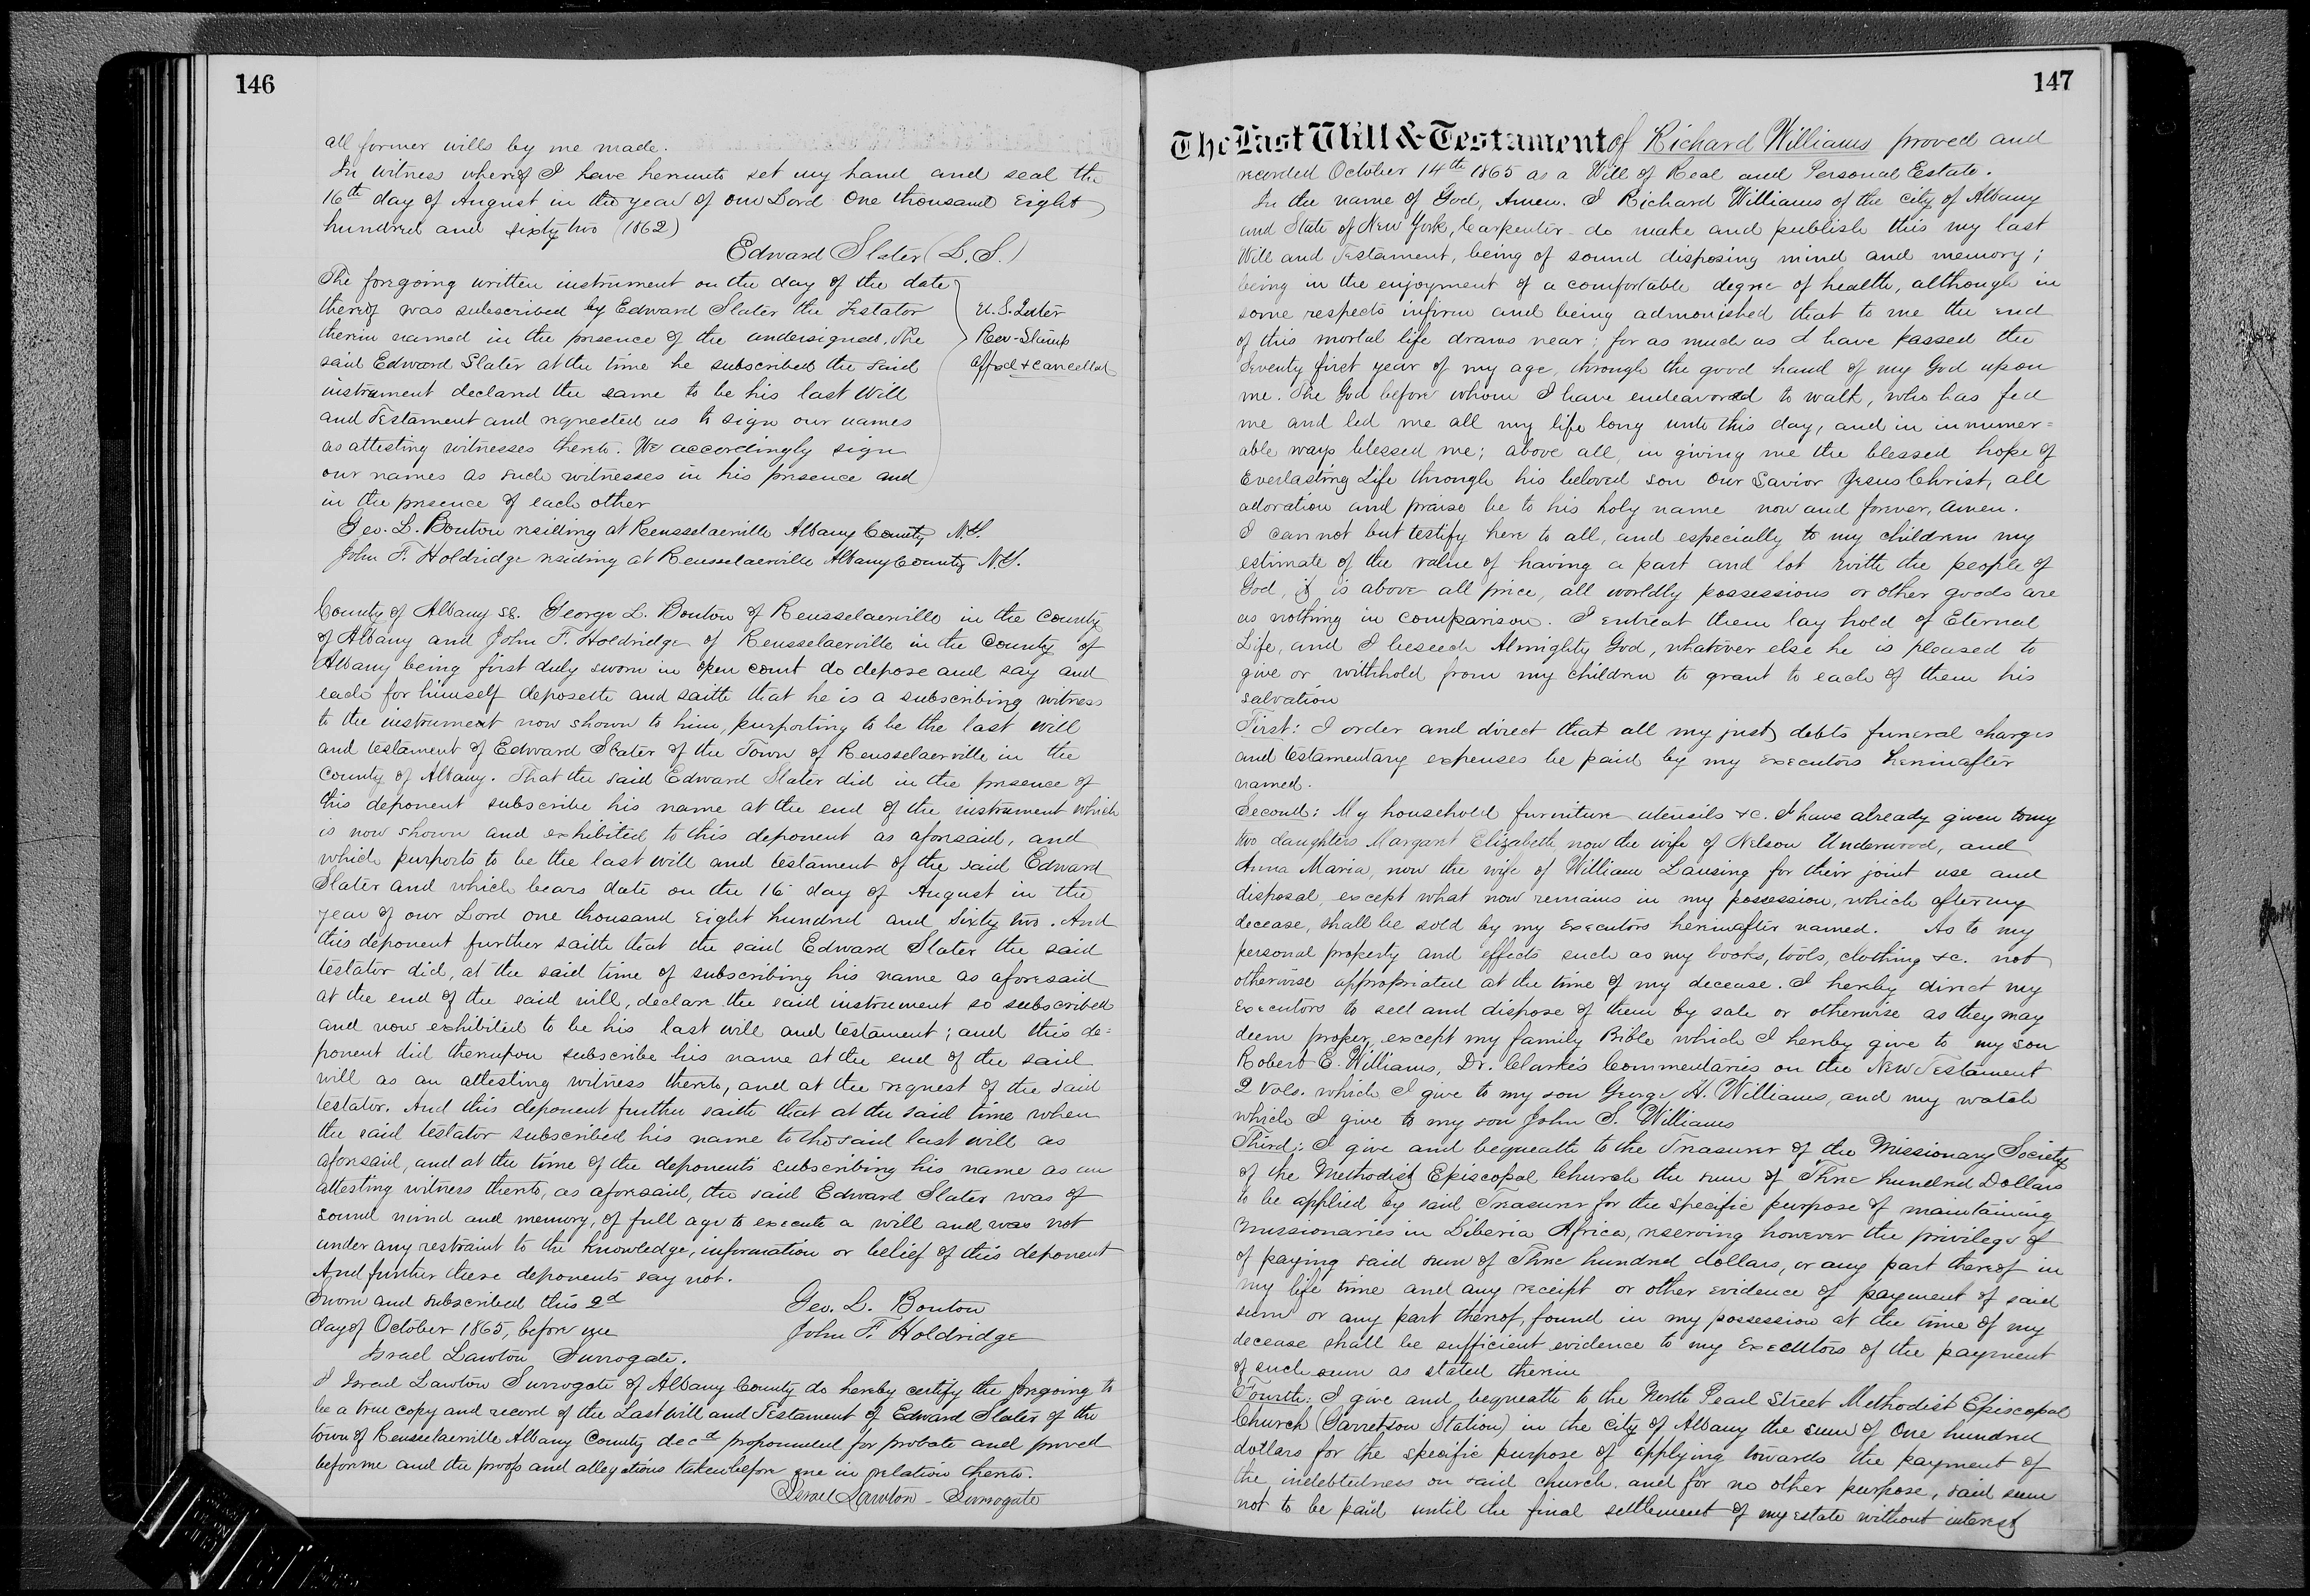 146
all former wills by me made.
In witness whereof I have hereunto set my hand and seal the
16th day of August in the year of our Lord One thousand Eight
hundred and sixty two (1862)
Edward Slater (L.S.)
The foregoing written instrument on the day of the date
thereof was subscribed by Edward Slater the Testator
therein named in the presence of the undersigned, The
said Edward Slater at the time he subscribed the said
instrument declared the same to be his last Will
and Testament and requested us to sign our names
as attesting witnesses thereto. We accordingly sign
our names as such witnesses in his presence and
in the presence of each other
U.S. Inter
Rev-Stamp
affxd & cancelled
Geo. L. Bouton residing at Rensselaerville Albany County N.Y.
John F. Holdridge residing at Rensselaerville Albany County N.Y.
County of Albany ss. George L. Bouton of Rensselaerville in the County
of Albany and John F. Holdridge of Rensselaerville in the County of
Albany being first duly sworn in open court do depose and say and
each for himself deposeth and saith that he is a subscribing witness
to the instrument now shown to him, purporting to be the last will
and testament of Edward Slater of the Town of Rensselaerville in the
County of Albany. That the said Edward Slater did in the presence of
this deponent subscribe his name at the end of the instrument which
is now shown and exhibited to this deponent as aforesaid, and
which purports to be the last will and testament of the said Edward
Slater and which bears date on the 16 day of August in the
year of our Lord one thousand Eight hundred and Sixty two. And
this deponent further saith that the said Edward Slater the said
testator did, at the said time of subscribing his name as aforesaid
at the end of the said will, declare the said instrument so subscribed
and now exhibited to be his last will and testament; and this de=
ponent did thereupon subscribe his name at the end of the said
will as an attesting witness thereto, and at the request of the said
testator. And this deponent further saith that at the said time when
the said testator subscribed his name to the said last will as
aforesaid, and at the time of the deponents subscribing his name as an
attesting witness thereto, as aforesaid, the said Edward Slater was of
sound mind and memory, of full age to execute a will and was not
under any restraint to the knowledge, information or belief of this deponent
And further these deponents say not.
Sworn and subscribed this 2d
day of October 1865, before me
Israel Lawton Surrogate.
Geo. L. Bouton
John F. Holdridge
I Israel Lawton Surrogate of Albany County do hereby certify the foregoing to
be a true copy and record of the Last Will and Testament of Edward Slater of the
town of Rensselaerville Albany County decd propounded for probate and proved
before me and the proofs and allegations taken before me in relation thereto.
Israel Lawton - Surrogate
147
The Last Will & Testament of Richard Williams proved and
recorded October 14th 1865 as a Will of Real and Personal Estate.
In the name of God, Amen. I Richard Williams of the City of Albany
and State of New York, Carpenter do make and publish this my last
Will and Testament, being of sound disposing mind and memory;
being in the enjoyment of a comfortable degree of health, although in
some respects infirm and being admonished that to me the end
of this mortal life draws near; for as much as I have passed the
Seventy first year of my age, through the good hand of my God upon
me. The God before whom I have endeavored to walk, who has fed
me and led me all my life long unto this day, and in innumer=
able ways blessed me; above all, in giving me the blessed hope of
Everlasting Life through his beloved son Our Savior Jesus Christ, all
adoration and praise be to his holy name now and forever, Amen.
I can not but testify here to all, and especially to my children my
estimate of the value of having a part and lot with the people of
God, it is above all price, all worldly possessions or other goods are
as nothing in comparison. I entreat them lay hold of Eternal
Life, and I beseech Almighty God, whatever else he is pleased to
give or withhold from my children to grant to each of them his
salvation
First: I order and direct that all my just debts funeral charges
and testamentary expenses be paid by my executors hereinafter
named.
Second: My household furniture utensils &c. I have already given to my
two daughters Margaret Elizabeth now the wife of Nelson Underwood, and
Anna Maria, now the wife of William Lansing for their joint use and
disposal, except what now remains in my possession, which after my
decease, shall be sold by my Executors hereinafter named. As to my
personal property and effects such as my books, tools, clothing &c. not
otherwise appropriated at the time of my decease. I hereby direct my
Executors to sell and dispose of them by sale or otherwise as they may
deem proper, except my family Bible which I hereby give to my son
Robert E. Williams, Dr. Clarke's Commentaries on the New Testament
2 Vols. which I give to my son George H. Williams, and my watch
which I give to my son John S. Williams
Third: I give and bequeath to the Treasurer of the Missionary Society
of the Methodist Episcopal Church the sum of Three hundred Dollars
to be applied by said Treasurer for the specific purpose of maintaining
Missionaries in Liberia Africa, reserving however the privilege of
of paying said sum of Three hundred dollars, or any part thereof in
my life time and any receipt or other evidence of payment of said
sum or any part thereof, found in my possession at the time of my
decease shall be sufficient evidence to my Executors of the payment
of such sum as stated therein
Fourth: I give and bequeath to the North Pearl Street Methodist Episcopal
Church (Garretson Station) in the City of Albany the sum of One hundred
dollars for the specific purpose of applying towards the payment of
the indebtedness on said church, and for no other purpose, said sum
not to be paid until the final settlement of my estate without interest